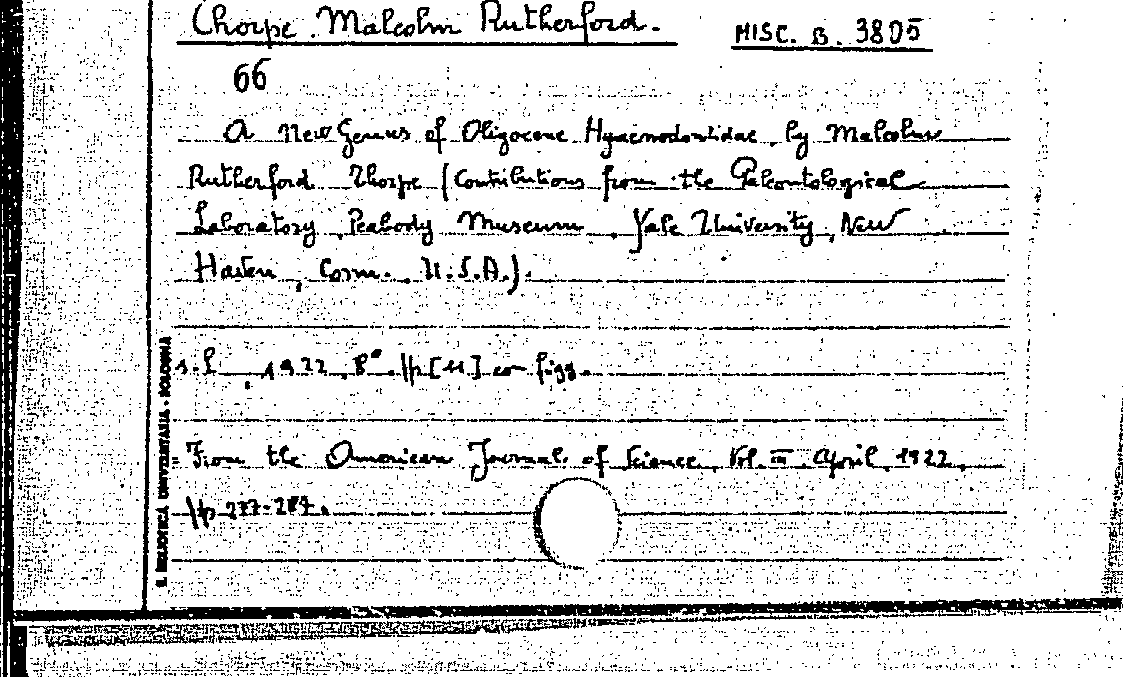 Thorpe. Malcolm Rutherford.
MISC. B. 3805
66
A New Genus of Oligocene Hyaenodontidae, by Malcolm
Rutherford Thorpe (Contributions from the Paleontological
Laboratory, Peabody Museum, Yale University, New
Haven, Conn., U.S.A.).
s.l., 1922, 8°. pp [11] con figg.
= From the American Journal of Science, Vol. III, April, 1922,
pp 277-287.
BIBLIOTECA UNIVERSITARIA - BOLOGNA